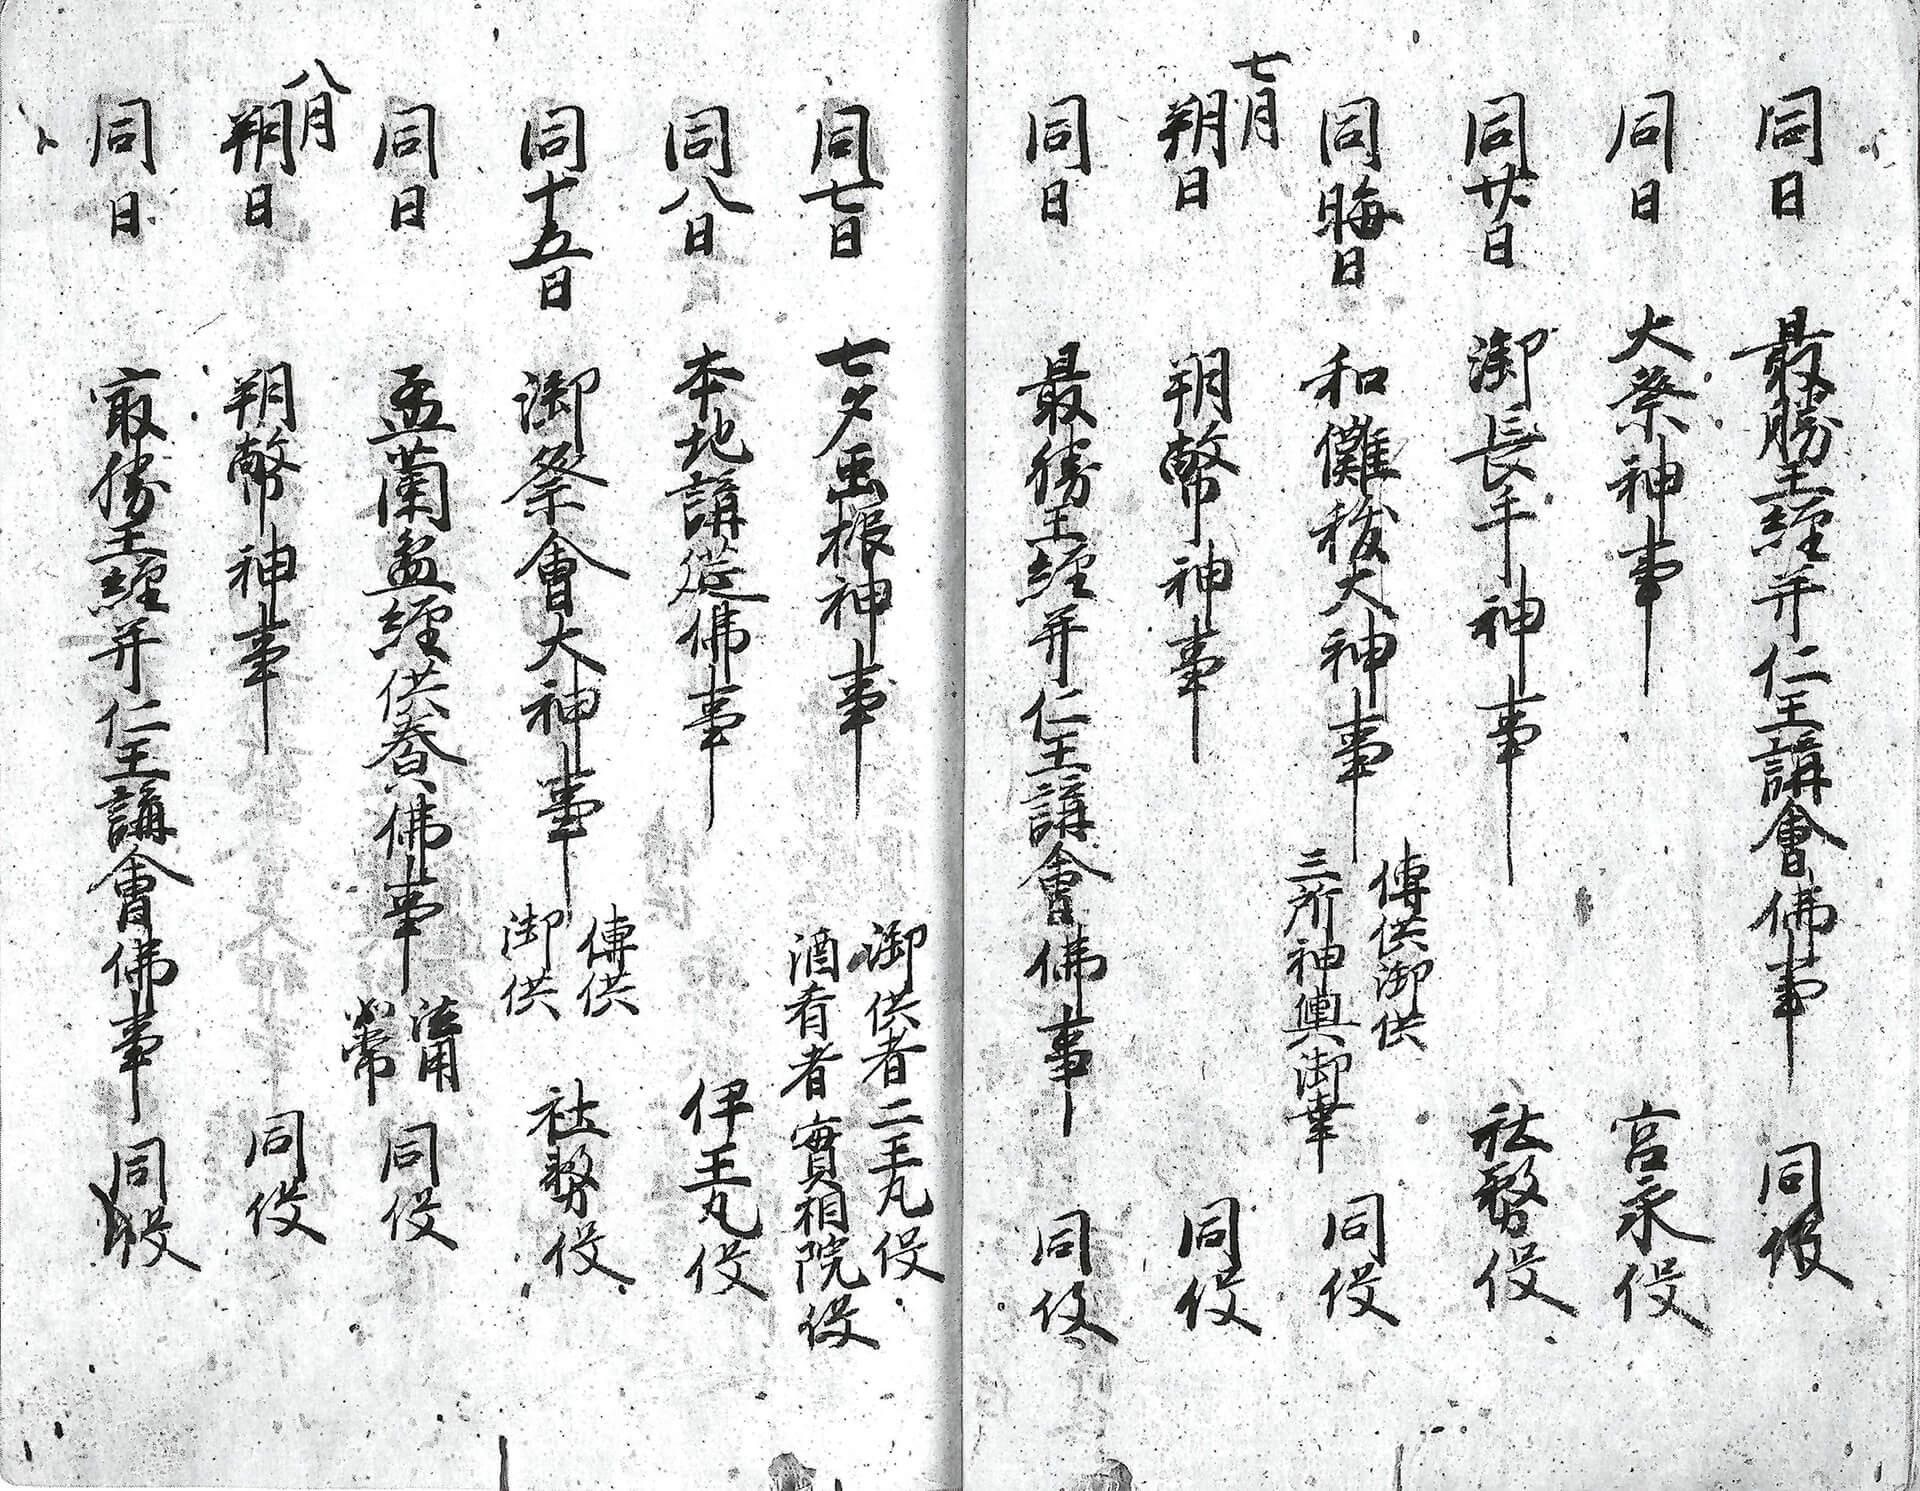 同日　最勝王經并仁王講會佛事　同役
同日　大祭神事　宮永役
同廿日　御長手神事　社務役
同晦日　和儺祓大神事　傳供御供
三所神輿御幸　同役
七月
朔日　朔幣神事　同役
同日　最勝王經并仁王講會佛事　同役
同七日　七夕虫振神事　御供者二王丸役
酒肴者實相院役
同八日　本地講莚佛事　伊王丸役
同十五日　御祭會大神事　傳供
御供　社務役
同日　盂蘭盆經供養佛事　法用
如常　同役
八月
朔日　朔幣神事　同役
同日　最勝王經并仁王講會佛事　同役